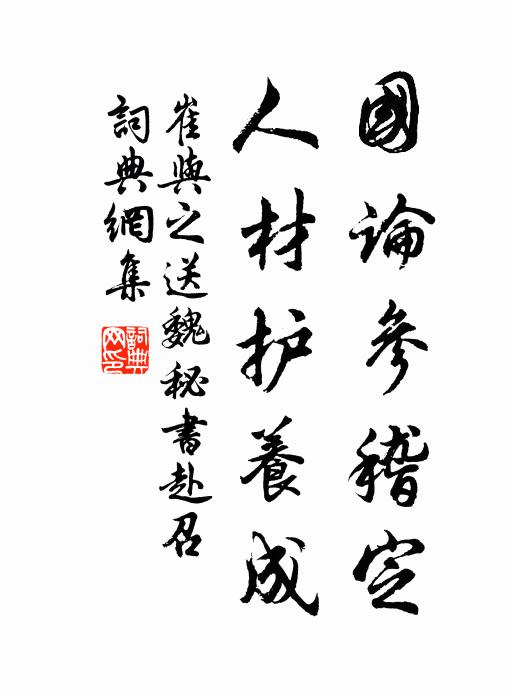 國論參稽定
人材护養成
崔與之送魏秘書赴召
詞典網集
詞典網印